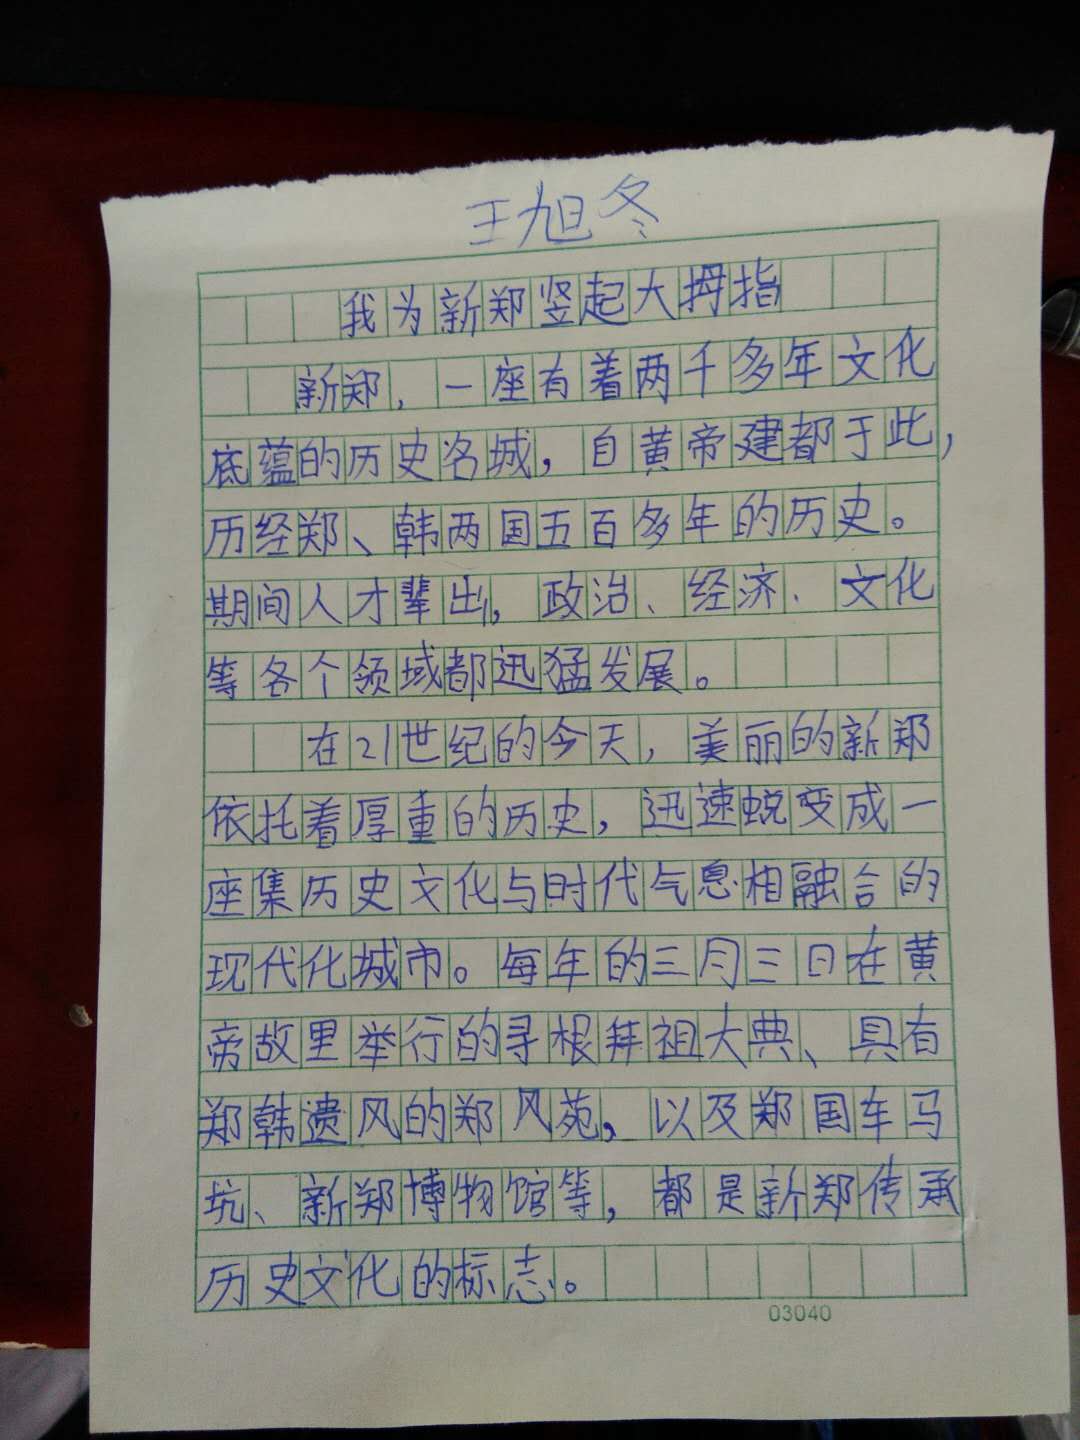 王旭冬
我为新郑竖起大拇指
新郑，一座有着两千多年文化
底蕴的历史名城，自黄帝建都于此，
历经郑、韩两国五百多年的历史。
期间人才辈出，政治、经济、文化
等各个领域都迅猛发展。
在21世纪的今天，美丽的新郑
依托着厚重的历史，迅速蜕变成一
座集历史文化与时代气息相融合的
现代化城市。每年的三月三日在黄
帝故里举行的寻根拜祖大典、具有
郑韩遗风的郑风苑，以及郑国车马
坑、新郑博物馆等，都是新郑传承
历史文化的标志。
03040